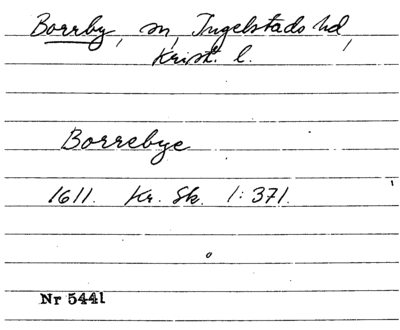 Borrby, sn, Ingelstads hd,
Krist. l.
Borrebye
1611. Kr. Sk. 1:371.
Nr 5441